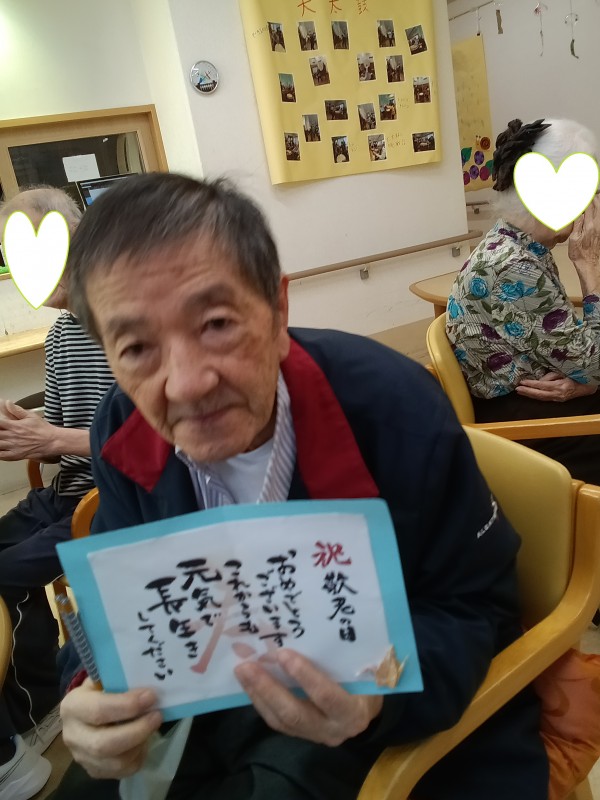 天太鼓
祝 敬老の日
おめでとう
ございます
これからも
元気で
長生き
してください